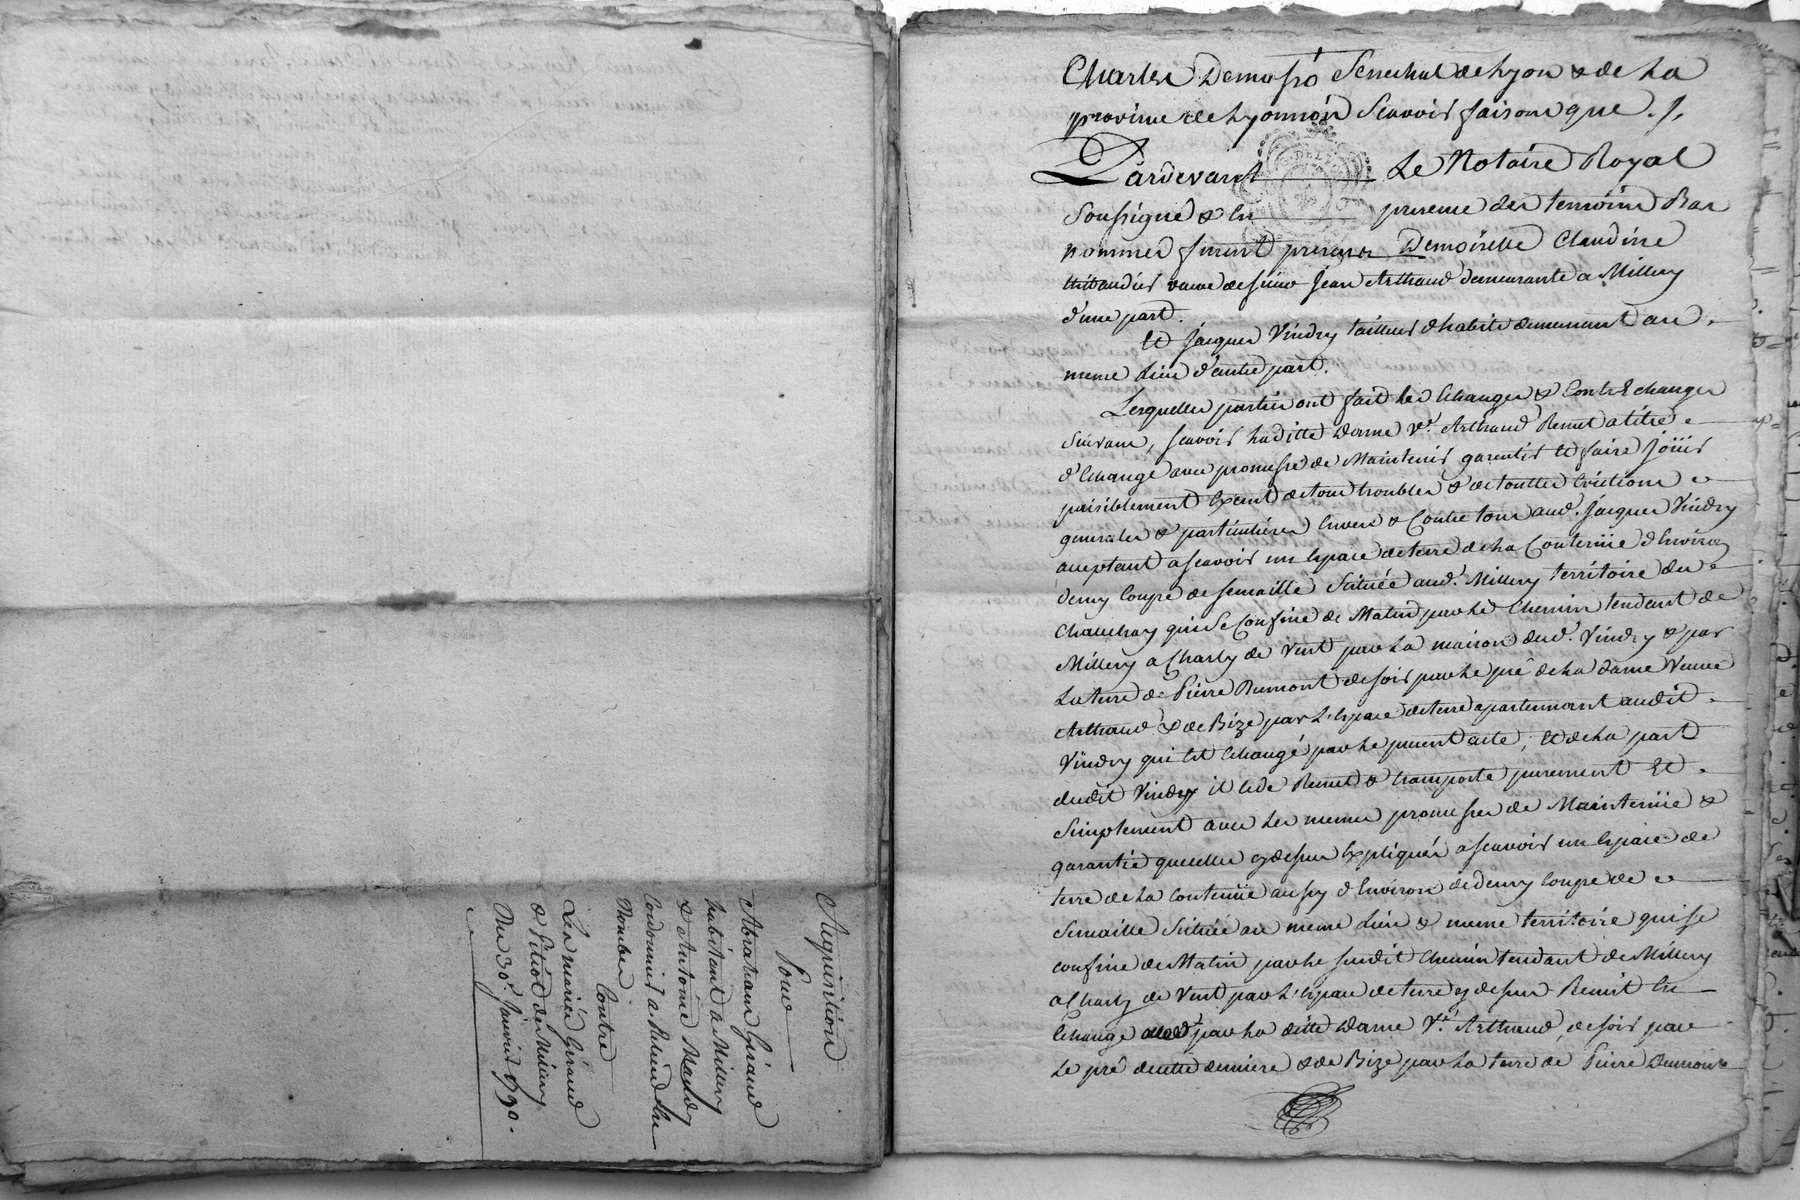 Acquisition
Pour
Abraham Giraud
habitant a Millery
& Antoine
Cordonnier a
Nombre
Contre
Les mariés Géraud
& Pitiot de Millery
Du 30e. Janvier 1790.
Charles Demasso Senechal de Lyon & de La
province de Lyonnois Scavoir faisons que ./.
Pardevant Le Notaire Royal
Soussigné & En presence des temoins Bas
nommes furent presens Demoiselle Claudine
thibaudier veuve de sieur Jean Arthaud demeurante a Millery
d'une part.
Et Jacques Vindry tailleur d'habits demeurant au
meme Lieu d'autre part.
Lesquelles parties ont fait les Echanges & ContrEchanges
Suivans, scavoir Laditte Dame Ve. Arthaud Remet a titre
d'Echange avec promesse de Maintenir garentir Et faire Joüir
paisiblement Exent de tous troubles & de touttes Evictions
generales & particulieres Envers & Contre tous aud. Jacques Vindry
acceptant ascavoir un Espace de terre de la Contenüe d'Environ
demy Coupe de semaille Scituée aud. Millery territoire du
Chauchay qui se Confine de Matin par Le Chemin tendant de
Millery a Charly de Vent par La maison dud. Vindry & par
La terre de Pierre Dumont de soir par Le pré de La dame Veuve
Arthaud & de Bize par L'Espace de terre apartennant audit
Vindry qui Est Echangé par Le present acte; Et de La part
dudit Vindry il cede Remet & transporte purement Et
Simplement avec Les memes promesses de Maintenüe &
garantie que celles cy dessus Expliquées ascavoir un Espace de
terre de La Contenüe aussy d'Environ de demy Coupe de
Semaille Scituée au meme Lieu & meme territoire qui se
confine de Matin par Le susdit Chemin tendant de Millery
a Charly de Vent par L'Espace de terre cy dessus Remit En
Echange par La ditte Dame Ve. Arthaud, de soir par
Le pré de cette derniere & de Bize par La terre de Pierre Dumont